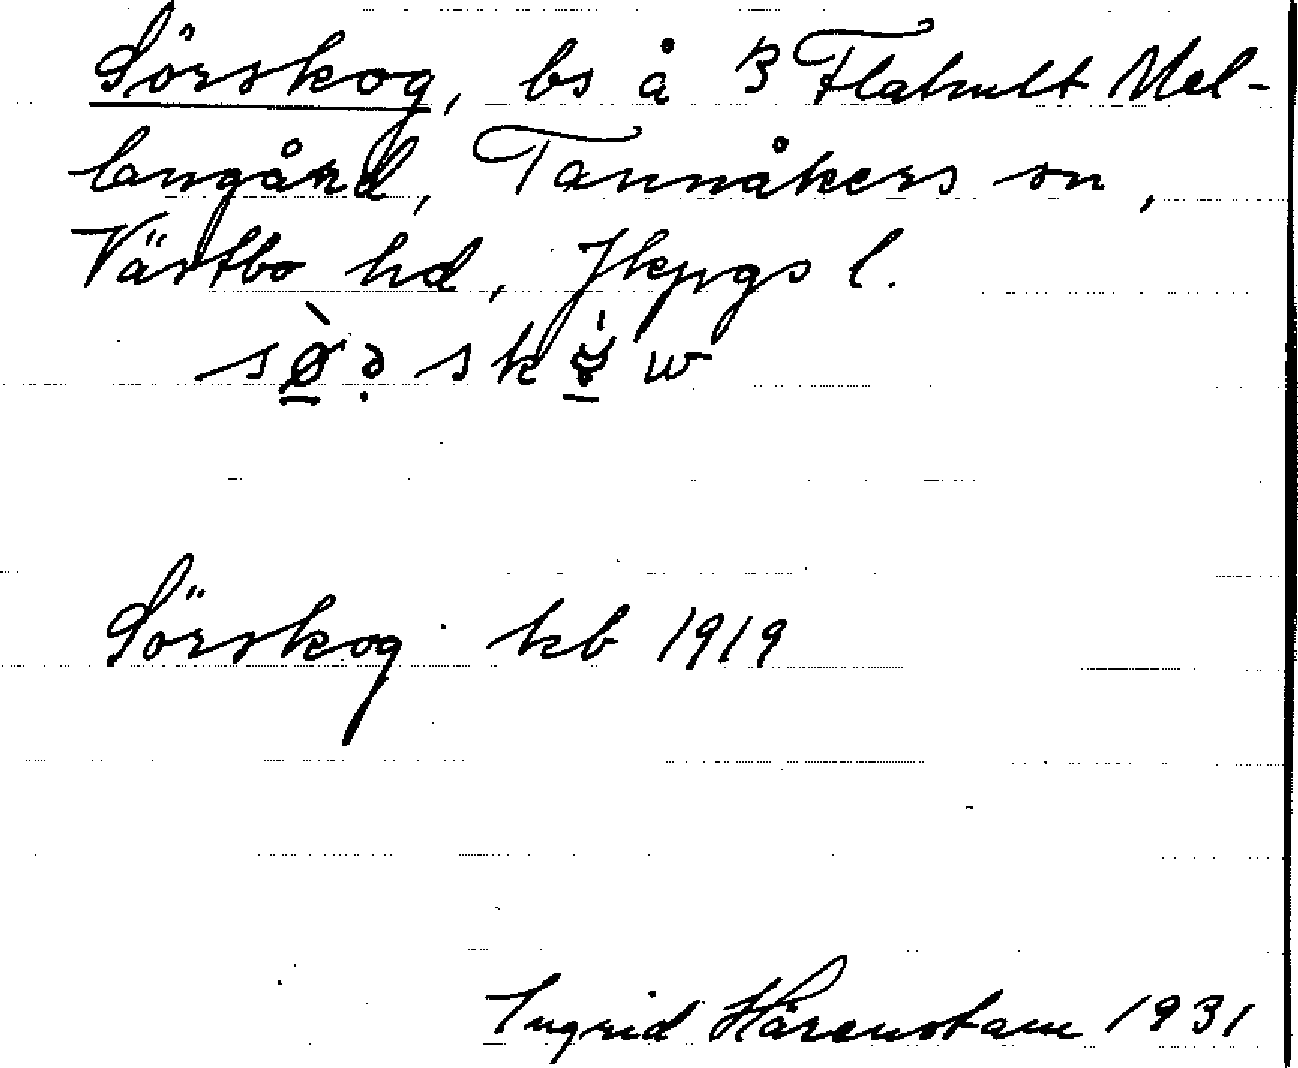 Sörskog, bs å 3 Flahult Mel-
langård, Tannåkers sn,
Västbo hd, Jkpgs l.
Sörskog kb 1919
Ingrid Hårenstam 1931